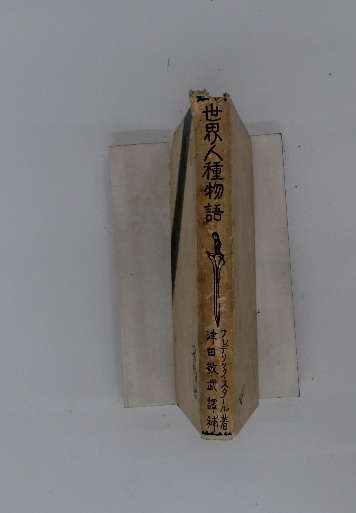 世界人種物語
フレデリック・スタール著
津田敬武譯補